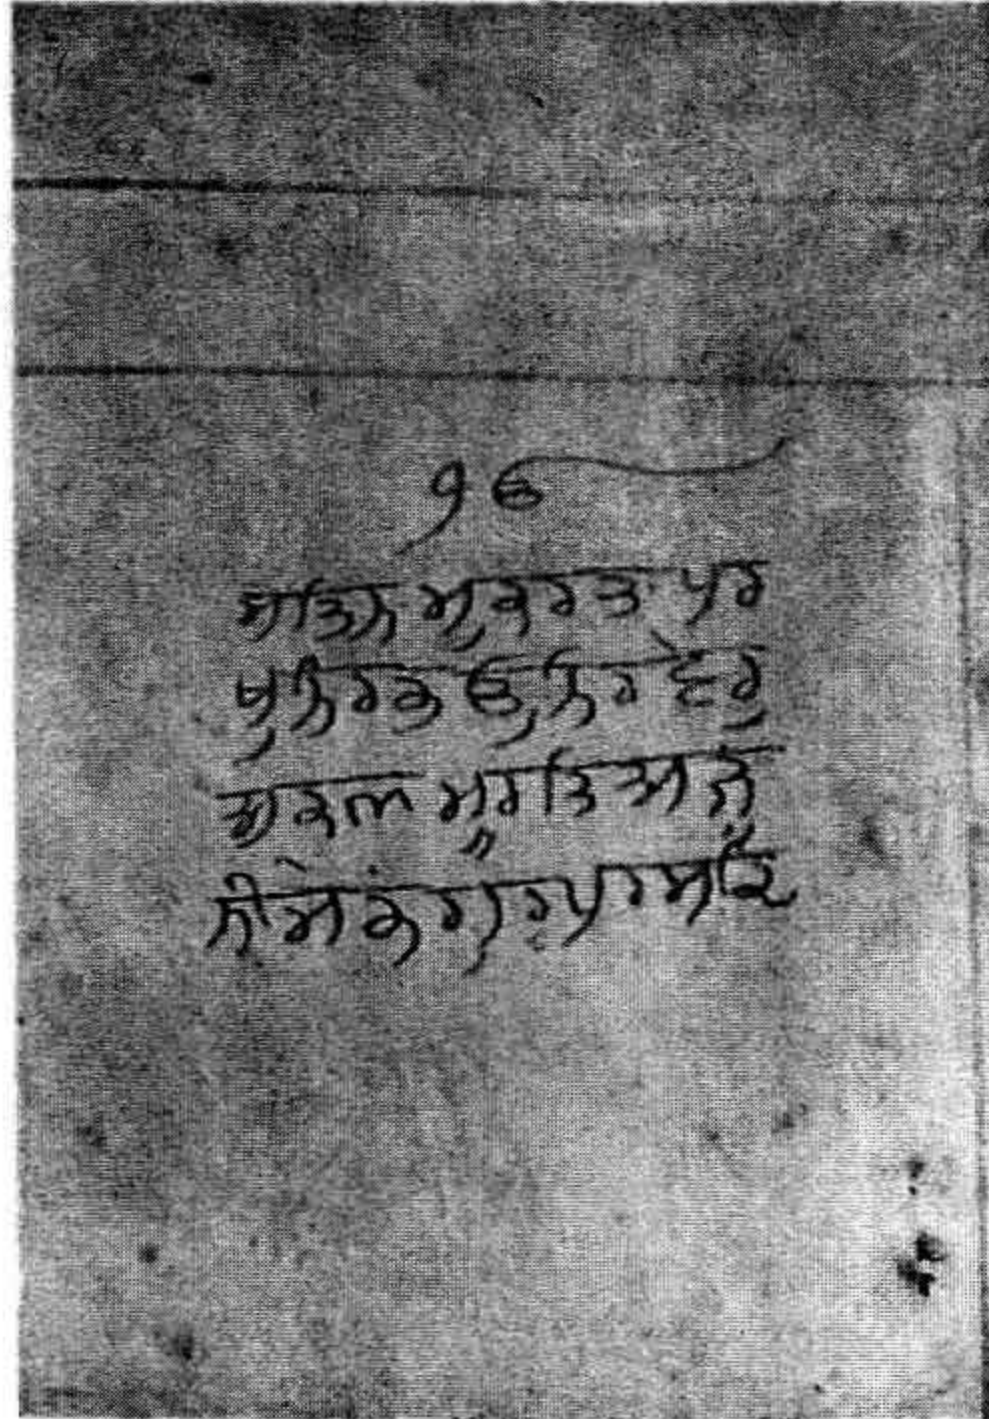 ੴ
ਸਤਿਨਾਮੁਕਰਤਾ ਪੁਰ
ਖੁਨਿਰਭਉਨਿਰਵੈਰੁ
ਅਕਾਲ ਮੂਰਤਿ ਅਜੂ
ਨੀਸੈਭੰਗੁਰਪਰਸਾਦਿ